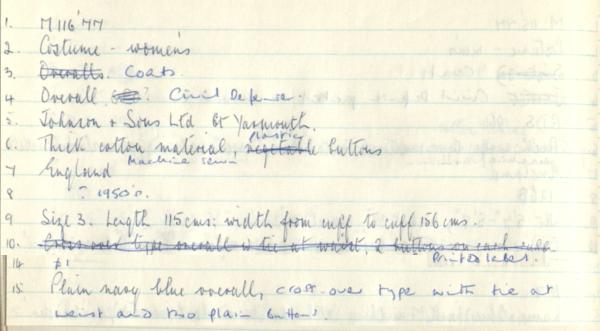 1. M116'77
2. Costume - women's
3. Overalls. Coats.
4 Overall ? Civil Defense.
5. Johnson & Sons Ltd Gt Yarmouth.
plastic
6. Thick cotton material, vegetable buttons
Machine sewn
7 England
8 ? 1950's.
9 Size 3. Length 115cms: width from cuff to cuff 156cms.
10. Cross over type overall w tie at waist, 2 buttons on each cuff
Printed label.
14 £1
15. Plain navy blue overall, cross-over type with tie at
waist and two plain buttons.